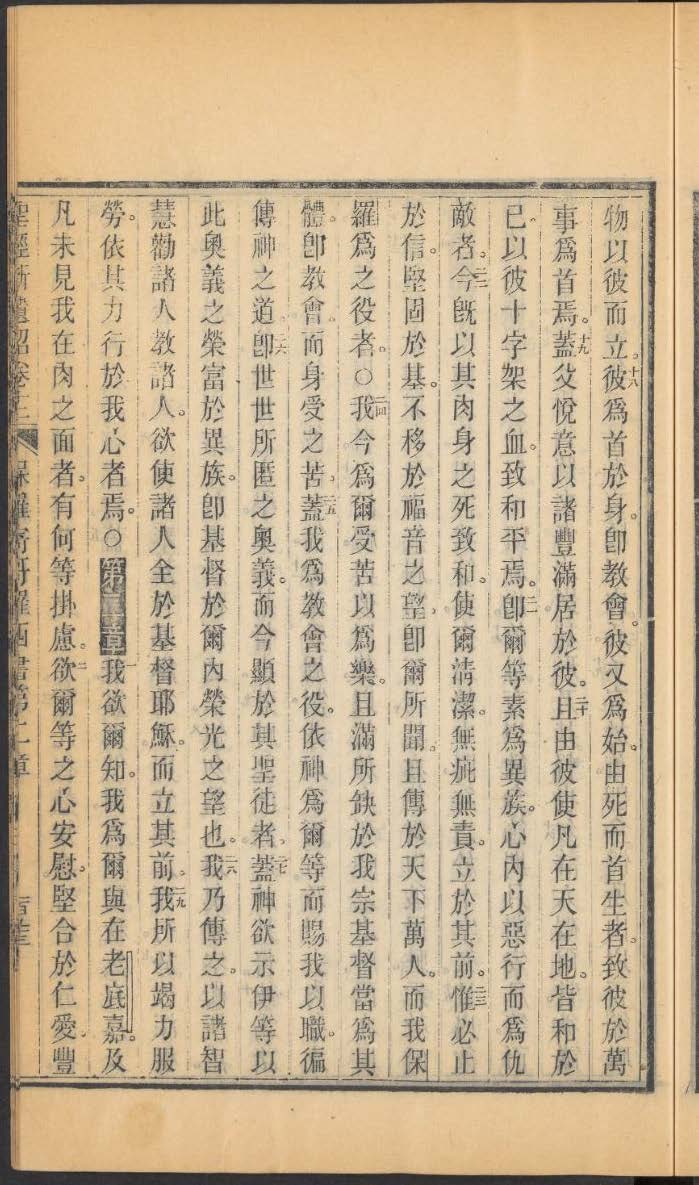 物以彼而立。十八彼爲首於身。卽教會。彼又爲始。由死而首生者。致彼於萬
事爲首焉。十九蓋父悅意以諸豐滿居於彼。二十且由彼使凡在天在地。皆和於
已。以彼十字架之血。致和平焉。二一卽爾等素爲異族。心內以惡行而爲仇
敵者。二二今旣以其肉身之死致和。使爾淸潔。無疵無責。立於其前。二三惟必止
於信。堅固於基。不移於福音之望。卽爾所聞。且傳於天下萬人。而我保
羅爲之役者。○二四我今爲爾受苦以爲樂。且滿所缺於我宗基督當爲其
體。卽教會。而身受之苦。二五蓋我爲教會之役。依神爲爾等而賜我以職。徧
傳神之道。二六卽世世所匿之奧義。而今顯於其聖徒者。二七蓋神欲示伊等以
此奧義之榮富於異族。卽基督於爾內榮光之望也。二八我乃傳之。以諸智
慧勸諸人教諸人。欲使諸人全於基督耶穌。而立其前。二九我所以竭力服
勞。依其力行於我心者焉。○第二章一我欲爾知。我爲爾與在老底嘉。及
凡未見我在肉之面者。有何等掛慮。二欲爾等之心安慰。堅合於仁愛豐
聖經新遺詔卷 保羅寄哥羅西書第二章